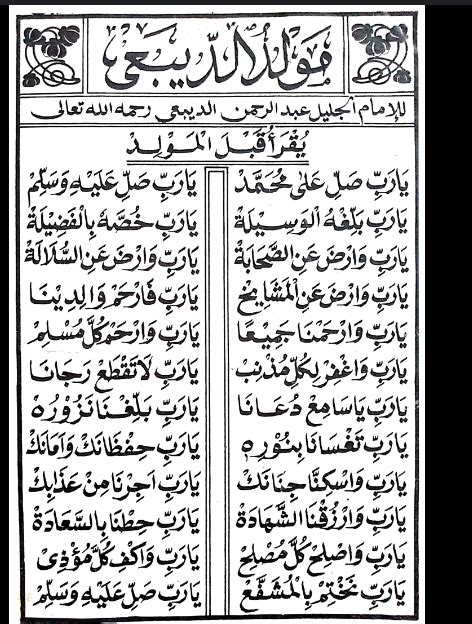 مَوْلِدُ الدِّيبَعِي
للإمام الجليل عبد الرحمن الديبعي رحمه الله تعالى
يُقْرَأُ قَبْلَ الْمَوْلِدِ
يَارَبِّ صَلِّ عَلَى مُحَمَّدْ يَارَبِّ صَلِّ عَلَيْهِ وَسَلِّمْ
يَارَبِّ بَلِّغْهُ الْوَسِيلَةْ يَارَبِّ خُصَّهُ بِالْفَضِيلَةْ
يَارَبِّ وَارْضَ عَنِ الصَّحَابَةْ يَارَبِّ وَارْضَ عَنِ السُّلَالَةْ
يَارَبِّ وَارْضَ عَنِ الْمَشَايِخْ يَارَبِّ فَارْحَمْ وَالِدِينَا
يَارَبِّ وَارْحَمْنَا جَمِيْعًا يَارَبِّ وَارْحَمْ كُلَّ مُسْلِمْ
يَارَبِّ وَاغْفِرْ لِكُلِّ مُذْنِبْ يَارَبِّ لَاتَقْطَعْ رَجَانَا
يَارَبِّ يَاسَامِعْ دُعَانَا يَارَبِّ بَلِّغْنَا نَزُوْرُهْ
يَارَبِّ تَغْشَانَا بِنُوْرِهْ يَارَبِّ حِفْظَانَكْ وَاَمَانَكْ
يَارَبِّ وَاسْكِنَّا جِنَانَكْ يَارَبِّ اَجِرْنَا مِنْ عَذَابِكْ
يَارَبِّ وَارْزُقْنَا الشَّهَادَةْ يَارَبِّ حِطْنَا بِالسَّعَادَةْ
يَارَبِّ وَاصْلِحْ كُلَّ مُصْلِحْ يَارَبِّ وَاكْفِ كُلَّ مُؤْذِىْ
يَارَبِّ نَخْتِمْ بِالْمُشَفَّعْ يَارَبِّ صَلِّ عَلَيْهِ وَسَلِّمْ